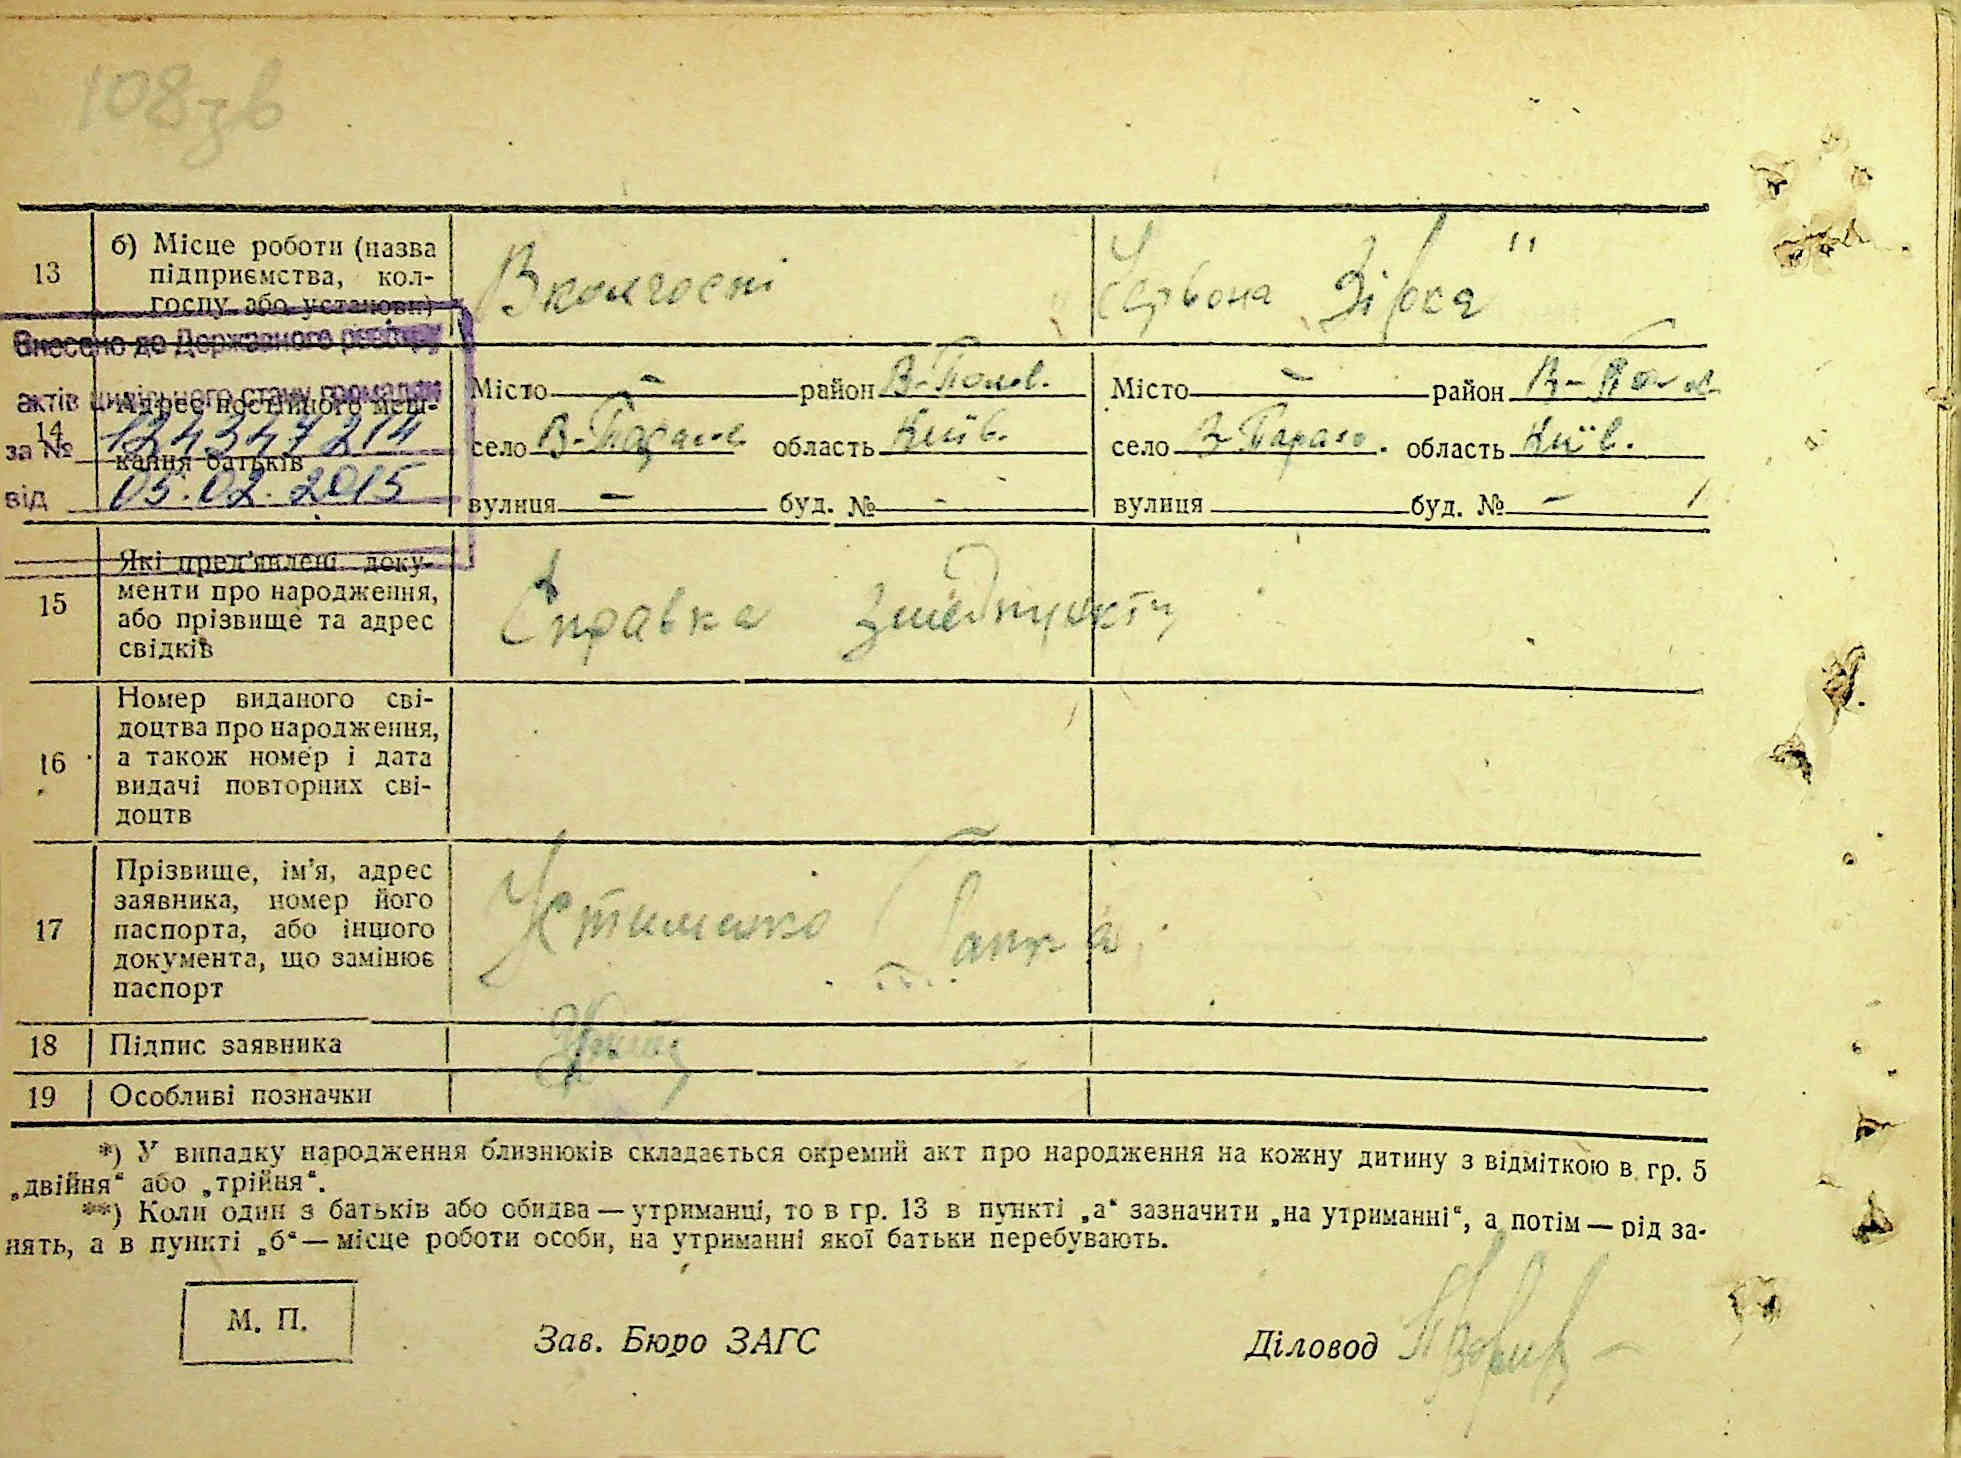 108зв
13
б) Місце роботи (назва
підприємства, кол-
госпу або установи)
В колгоспі Червона Зірка"
Внесено до Державного реєстру
актів цивільного стану громадян
за № 124347214
від 05.02.2015
14
Адрес постійного меш-
кання батьків
Місто — район В-Полов.
село В-Парал. область Київ.
вулиця — буд. № -
Місто — район В-Пол
село В-Парал. область Київ.
вулиця буд. № —
15
Які пред'явлені доку-
менти про народження,
або прізвище та адрес
свідків
Справка з медпункту
16
Номер виданого сві-
доцтва про народження,
а також номер і дата
видачі повторних сві-
доцтв
17
Прізвище, ім'я, адрес
заявника, номер його
паспорта, або іншого
документа, що замінює
паспорт
Устименко Гапка
18
Підпис заявника
19
Особливі позначки
*) У випадку народження близнюків складається окремий акт про народження на кожну дитину з відміткою в гр. 5
„двійня“ або „трійня“.
**) Коли один з батьків або обидва — утриманці, то в гр. 13 в пункті „а“ зазначити „на утриманні“, а потім — рід за-
нять, а в пункті „б“ — місце роботи особи, на утриманні якої батьки перебувають.
М. П.
Зав. Бюро ЗАГС
Діловод